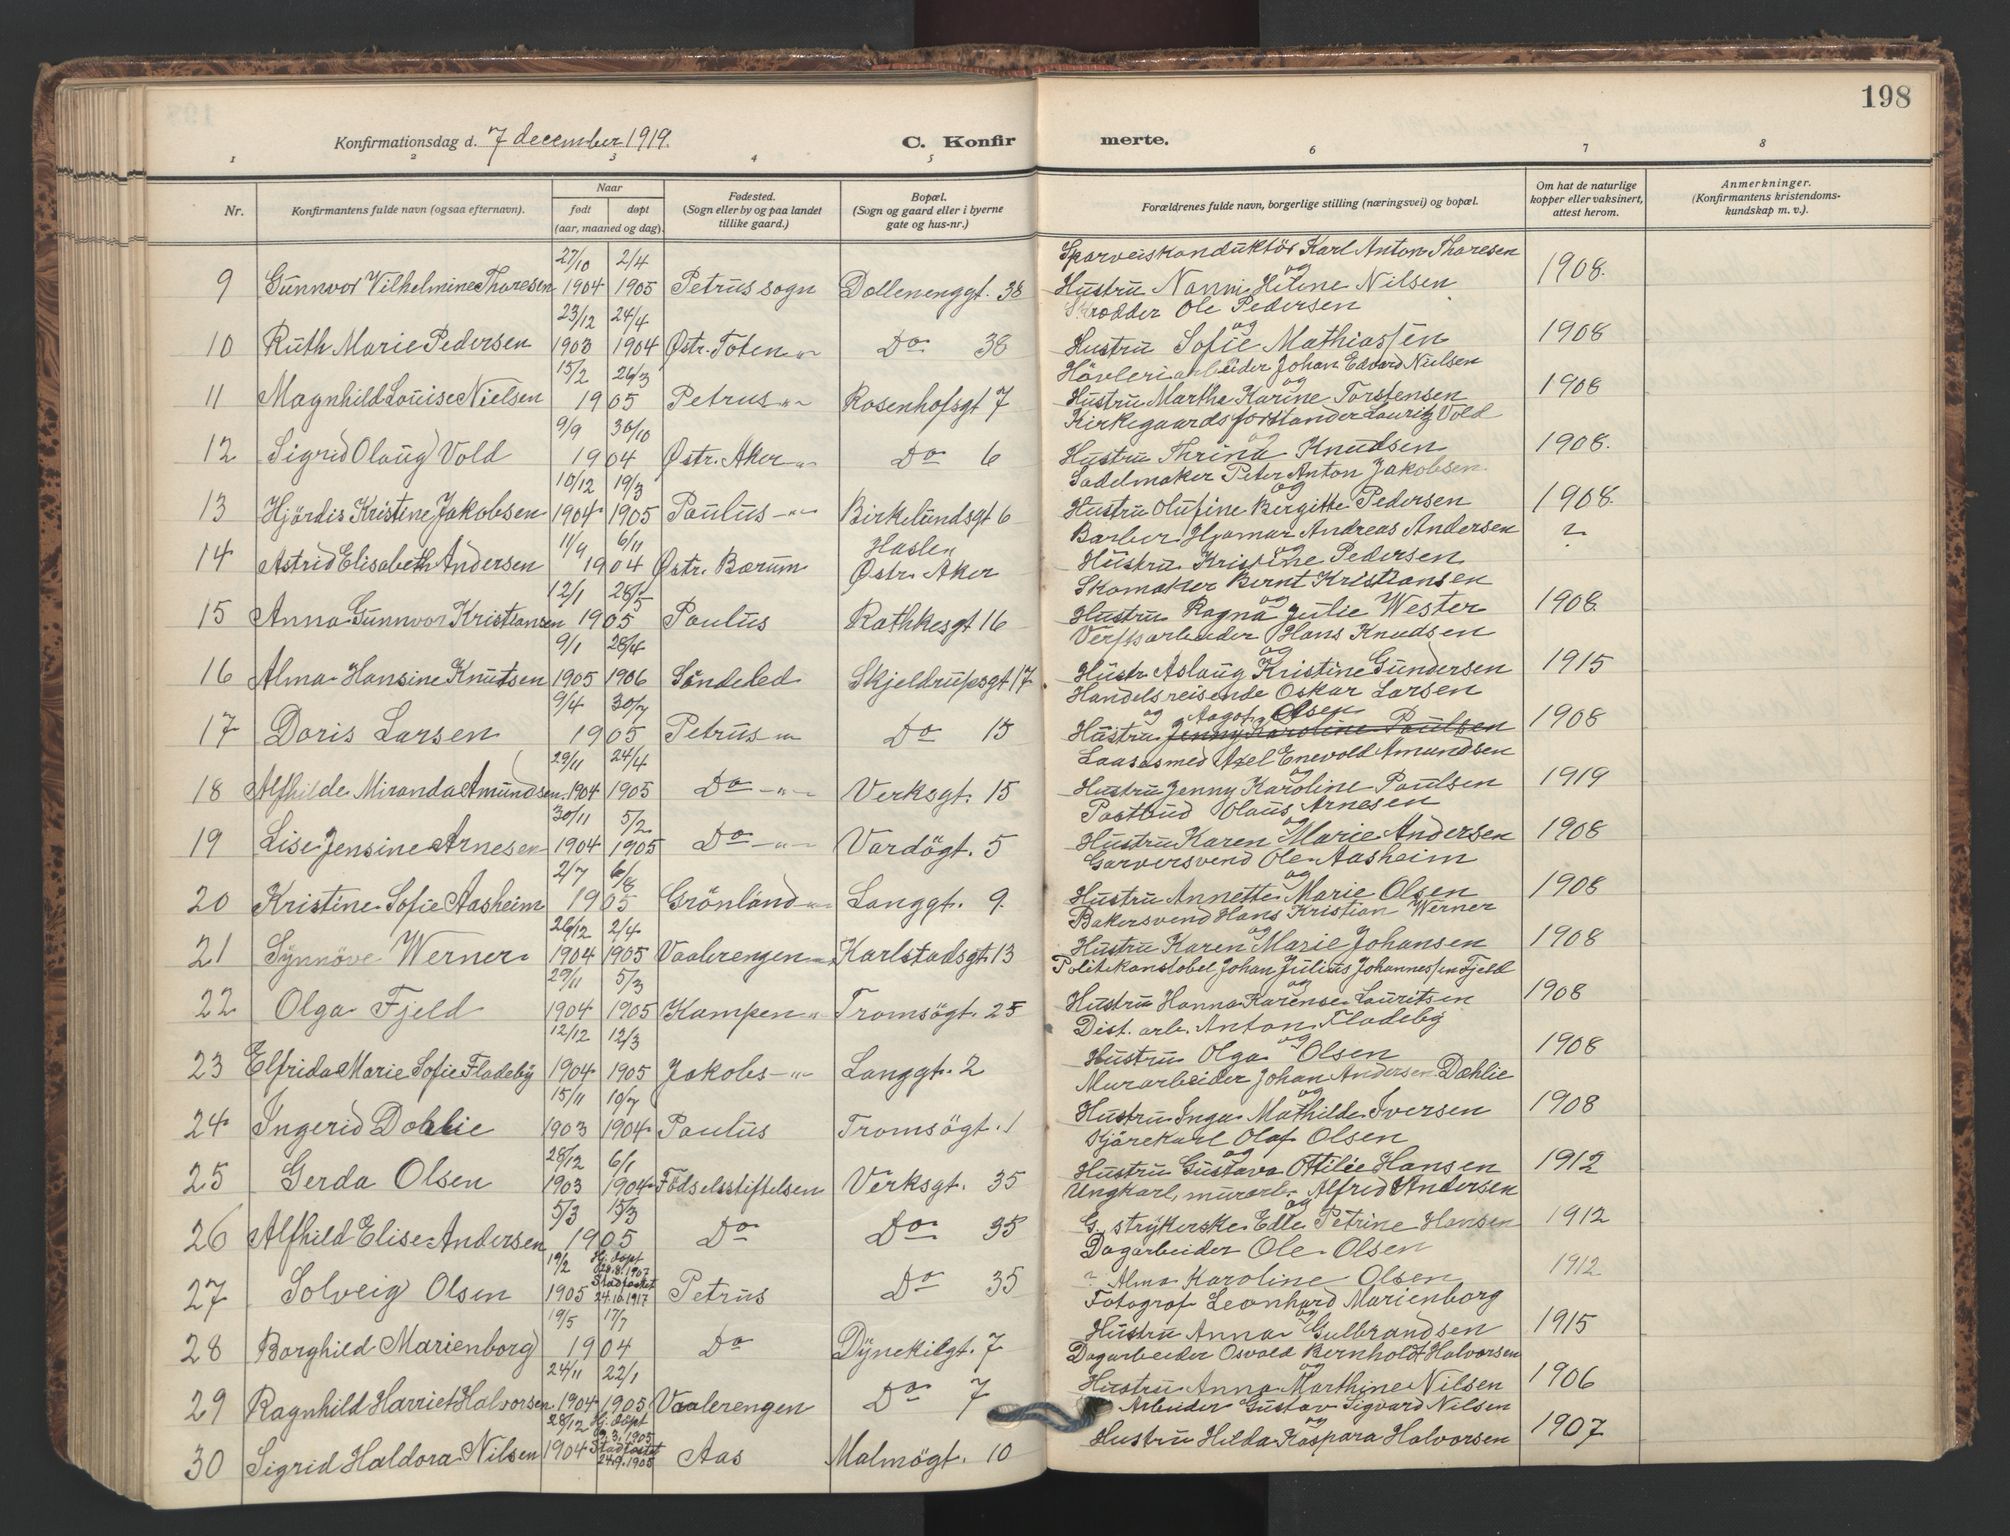 198
Konfirmationsdag d. 7 december 1919.
C. Konfir merte.
1 2 3 4 5 6 7 8
Nr. Konfirmantens fulde navn (ogsaa efternavn). Naar født døpt (aar, maaned og dag). Fødested. (Sogn eller by og paa landet tillike gaard.) Bopæl. (Sogn og gaard eller i byerne gate og hus-nr.) Forældrenes fulde navn, borgerlige stilling (næringsvei) og bopæl. Om hat de naturlige kopper eller vaksinert, attest herom. Anmerkninger. (Konfirmantens kristendoms-kundskap m. v.).
27/10 2/4 Sporveiskonduktör Karl Anton Thoresen og
9 Gunnvor Vilhelmine Thoresen 1904 1905 Petrus sogn Dællenenggt. 38 Hustru Nanni Helene Nilsen 1908.
23/12 24/4 Skrædder Ole Pedersen og
10 Ruth Marie Pedersen 1903 1904 Østr. Toten -"- Do 38 Hustru Sofie Mathiassen 1908
15/2 26/3 Hövleriarbeider Johan Edvard Nielsen og
11 Magnhild Louise Nielsen 1905 Petrus -"- Rosenhofsgt 7 Hustru Martha Karine Torstensen 1908
9/9 30/10 Kirkegaardsforstander Lauritz Vold og
12 Sigrid Olaug Vold 1904 Østr. Aker -"- Do 6 Hustru Thrina Knudsen 1908.
10/12 19/3 Sadelmaker Peter Anton Jakobsen og
13 Hjördis Kristine Jakobsen 1904 1905 Paulus -"- Birkelundsgt 6 Hustru Olufine Birgitte Pedersen 1908.
11/9 6/11 Haslen Barber Hjamar Andreas Andersen og ?
14 Astrid Elisabeth Andersen 1904 Østr. Bærum Østr. Aker Hustru Kristine Pedersen
12/1 28/5 Skomaker Bernt Kristiansen og
15 Anna Gunnvor Kristiansen 1905 Paulus Rathkesgt 16 Hustru Ragna Julie Wester 1908
9/1 28/4 Verftsarbeider Hans Knudsen og
16 Alma Hansine Knutsen 1905 1906 Söndeled Skjeldrupsgt 17 Hustr Aslaug Kristine Gundersen 1915
9/4 30/7 Handelsreisende Oskar Larsen og Aagot Olsen
17 Doris Larsen 1905 Petrus -"- Do 15 Hustru Jenny Karoline Paulsen 1908
29/11 24/4 Laasesmed Axel Enevold Amundsen og
18 Alfhilde Miranda Amundsen 1904 1905 Do -"- Verksgt. 15 Hustru Jenny Karoline Paulsen 1919
30/11 5/2 Postbud Olaus Arnesen og
19 Lise Jensine Arnesen 1904 1905 Do -"- Vardögt. 5 Hustru Karen Marie Andersen 1908
2/7 6/8 Garversvend Ole Aasheim og
20 Kristine Sofie Aasheim 1905 Grönland -"- Langgt. 9 Hustru Annette Marie Olsen 1908
26/12 2/4 Bakersvend Hans Kristian Werner og
21 Synnöve Werner 1904 1905 Vaalerengen -"- Karlstadsgt. 13 Hustru Karen Marie Johansen 1908
29/11 5/3 Politikonstabel Johan Julius Johannessen Fjeld og
22 Olga Fjeld 1904 1905 Kampen -"- Tromsögt. 25 Hustru Hanna Karense Lauritsen 1908
12/12 12/3 Dist. arb. Anton Fladeby og
23 Elfrida Marie Sofie Fladeby 1904 1905 Jakobs -"- Langgt. 2 Hustru Olga Olsen 1908
15/11 10/7 Murarbeider Johan Andersen Dæhlie og
24 Ingerid Dahlie 1903 1904 Paulus Tromsögt. 1 Hustru Inga Mathilde Iversen 1908
28/12 6/1 Kjörekarl Olaf Olsen og
25 Gerda Olsen 1903 1904 Födselsstiftelsen Verksgt. 35 Hustru Gustava Ottilie Hansen 1912
5/3 15/3 Ungkarl, murarb. Alfred Andersen og
26 Alfhild Elise Andersen 1905 Do Do 35 G. strykerske Edle Petrine Hansen 1912
19/2 Hj. döpt 1907 Stadfæstet Dagarbeider Ole Olsen
27 Solveig Olsen 1905 24.10.1917 Petrus Do 35 ? Alma Karoline Olsen 1912
19/5 17/7 Fotograf Leonhard Marienborg og
28 Borghild Marienborg 1904 Do Dynekilgt. 7 Hustru Anna Gulbrandsen 1915
24/11 22/1 Dagarbeider Osvald Bernholdt Halvorsen og
29 Ragnhild Harriet Halvorsen 1904 1905 Vaalerengen Do 7 Hustru Anna Marthine Nilsen 1906
28/12 Hj. döpt 1905 Stadfæstet Arbeider Gustav Sigvard Nilsen og
30 Sigrid Haldora Nilsen 1904 24.9.1905 Aas Malmögt. 10 Hustru Hilda Kaspara Halvorsen 1907